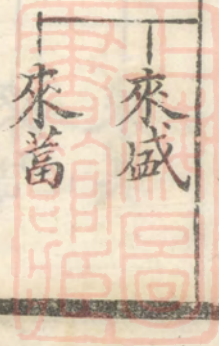 來盛
來菑